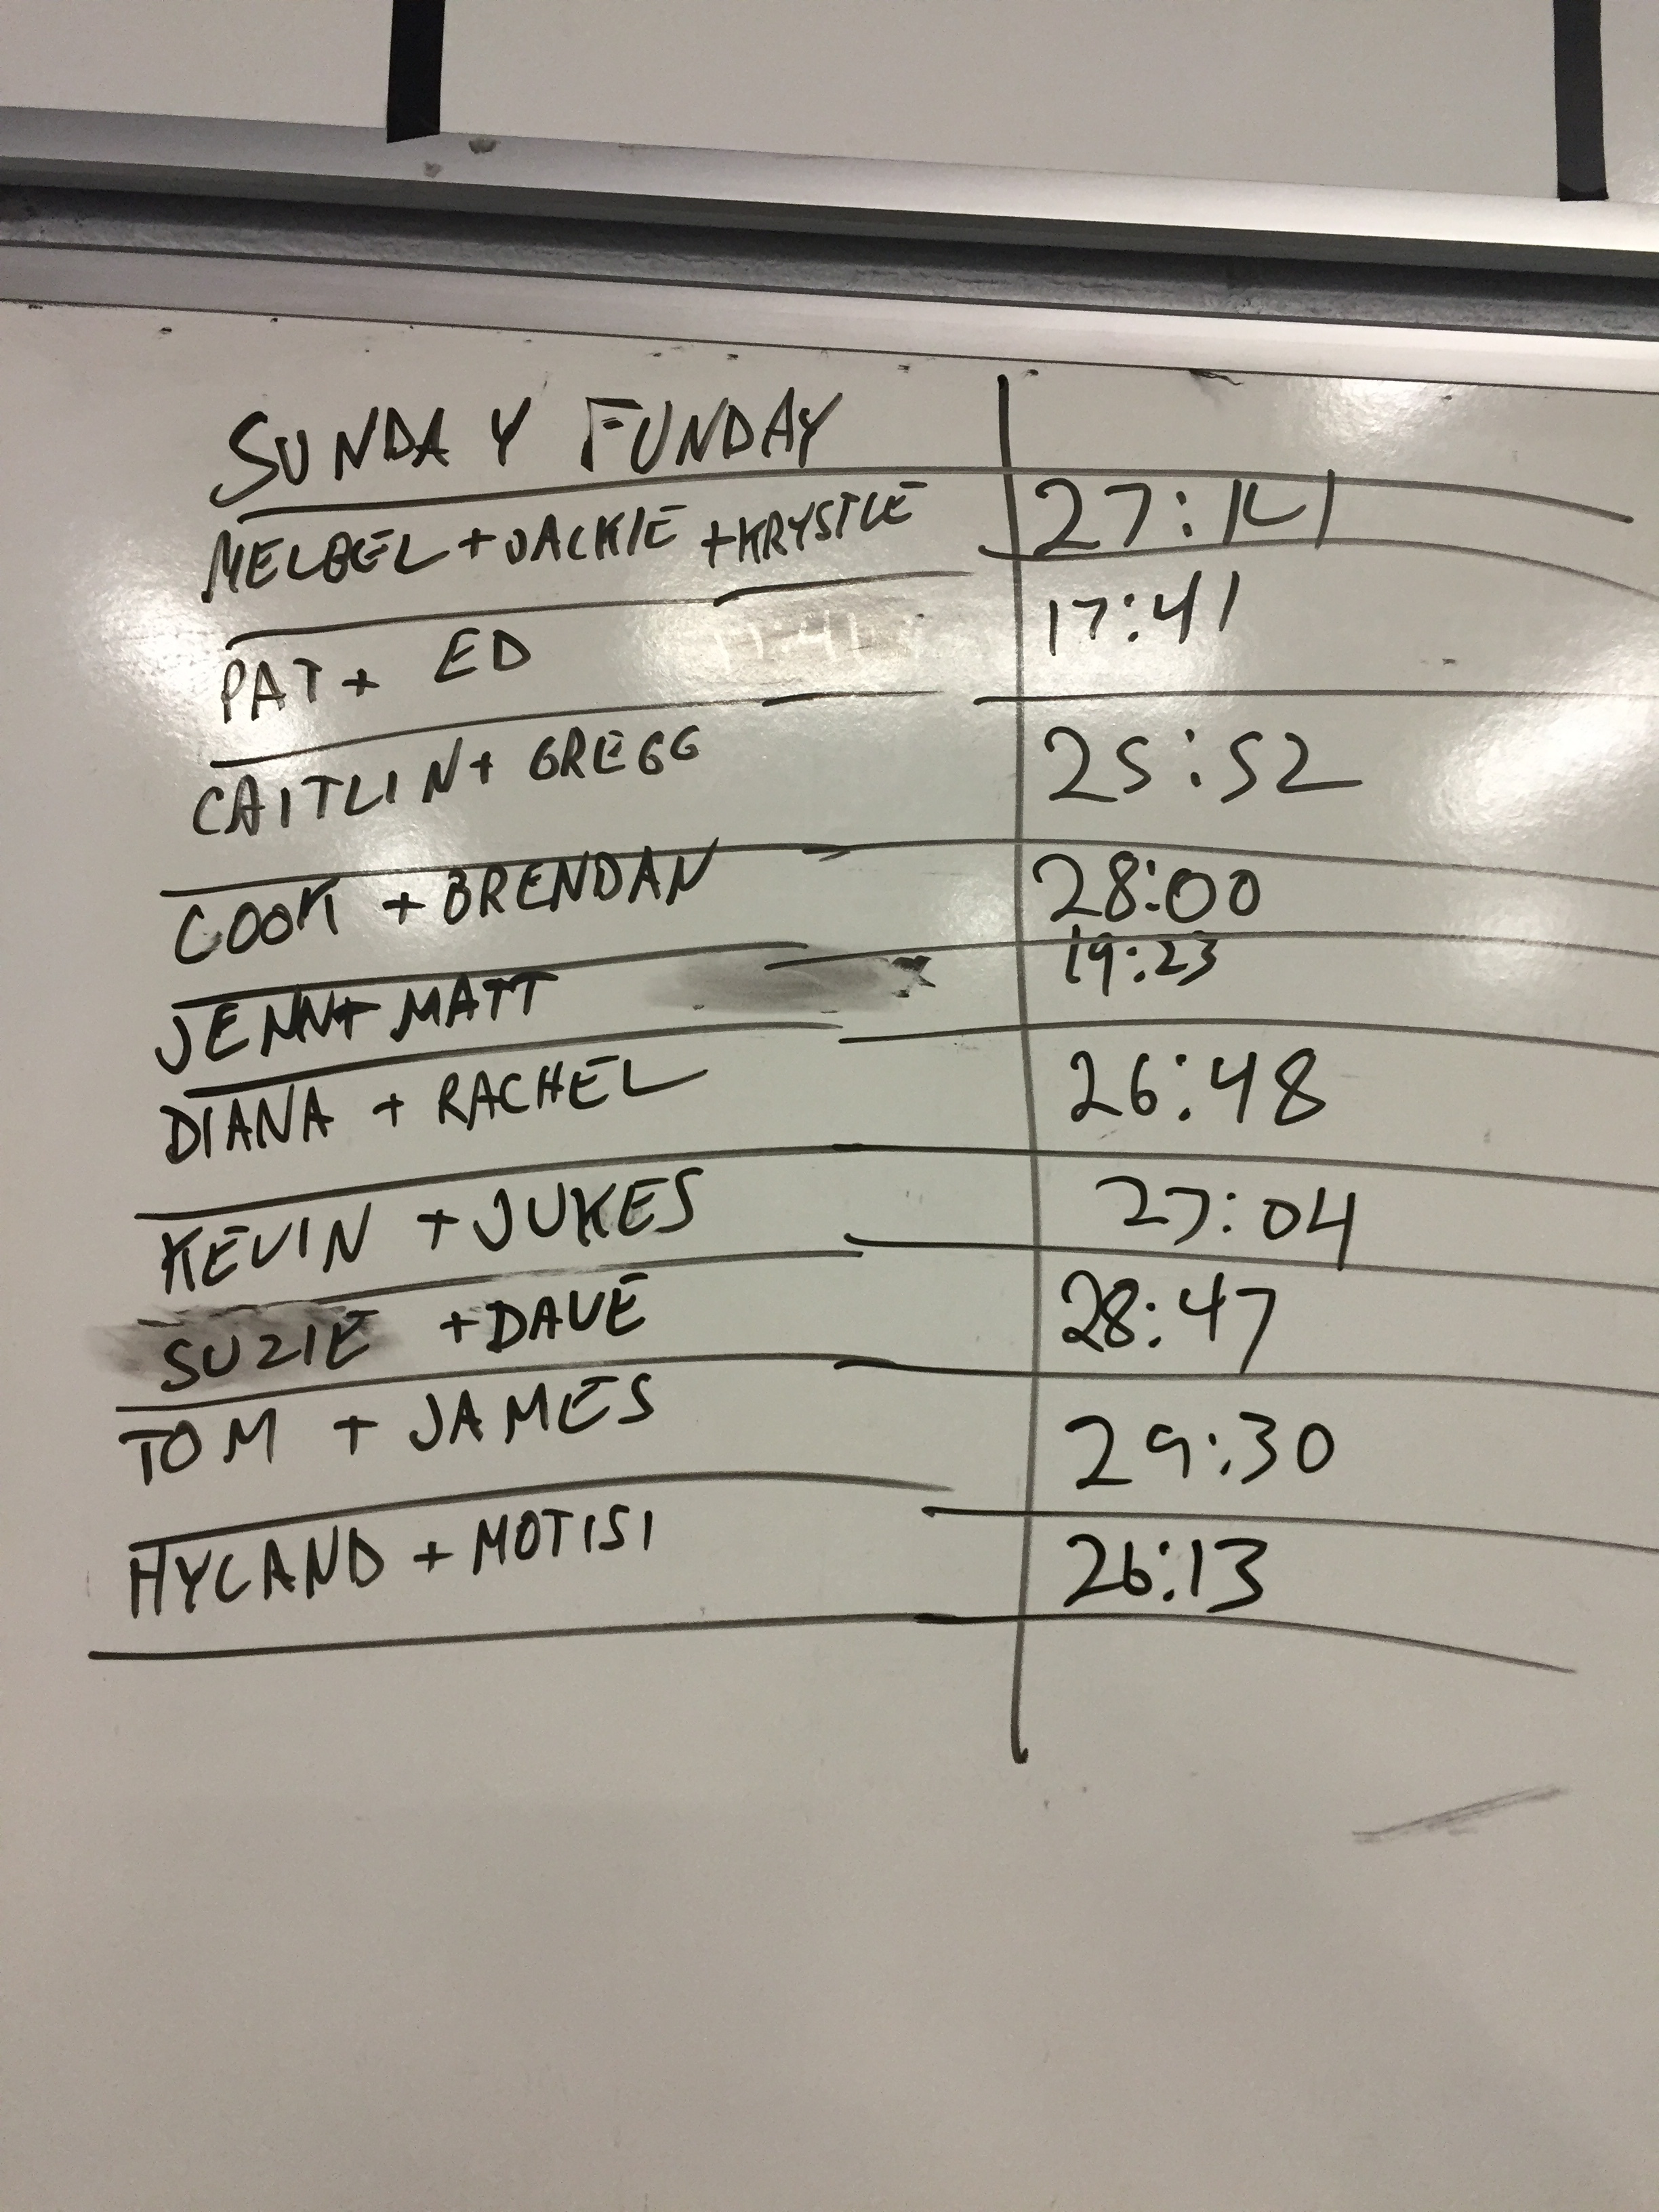 SUNDAY FUNDAY
MELBEL + JACKIE + KRYSTLE 27:14
PAT + ED 17:41
CAITLIN + GREGG 25:52
COOK + BRENDAN 28:00
JENN + MATT 19:23
DIANA + RACHEL 26:48
KEVIN + JUKES 27:04
SUZIE + DAVE 28:47
TOM + JAMES 29:30
HYLAND + MOTISI 26:13